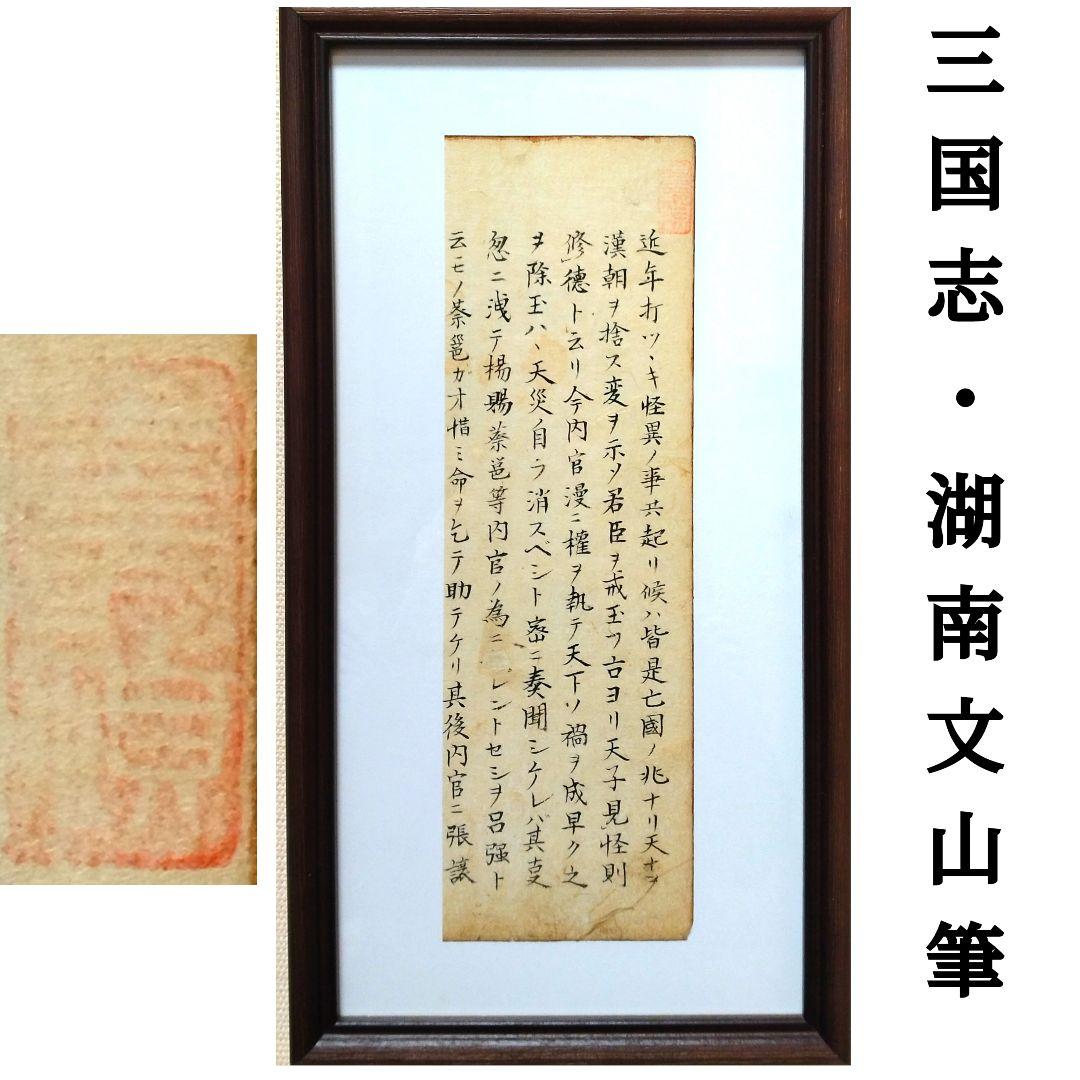 三国志・湖南文山筆
近年打ツヽキ怪異ノ事共起リ候ハ皆是亡國ノ兆ナリ天ナヲ
漢朝ヲ捨ス変ヲ示ソ君臣ヲ戒玉フ古ヨリ天子見怪則
修德ト云リ今内官漫ニ權ヲ執テ天下ソ禍ヲ成早ク之
ヲ除玉ハヽ天災自ラ消スベシト密ニ奏聞シケレバ其叓
忽ニ洩テ楊賜蔡邕等内官ノ為ニレントセシヲ呂强ト
云モノ蔡邕カオ惜ミ命ヲ乞テ助テケリ其後内官ニ張譲